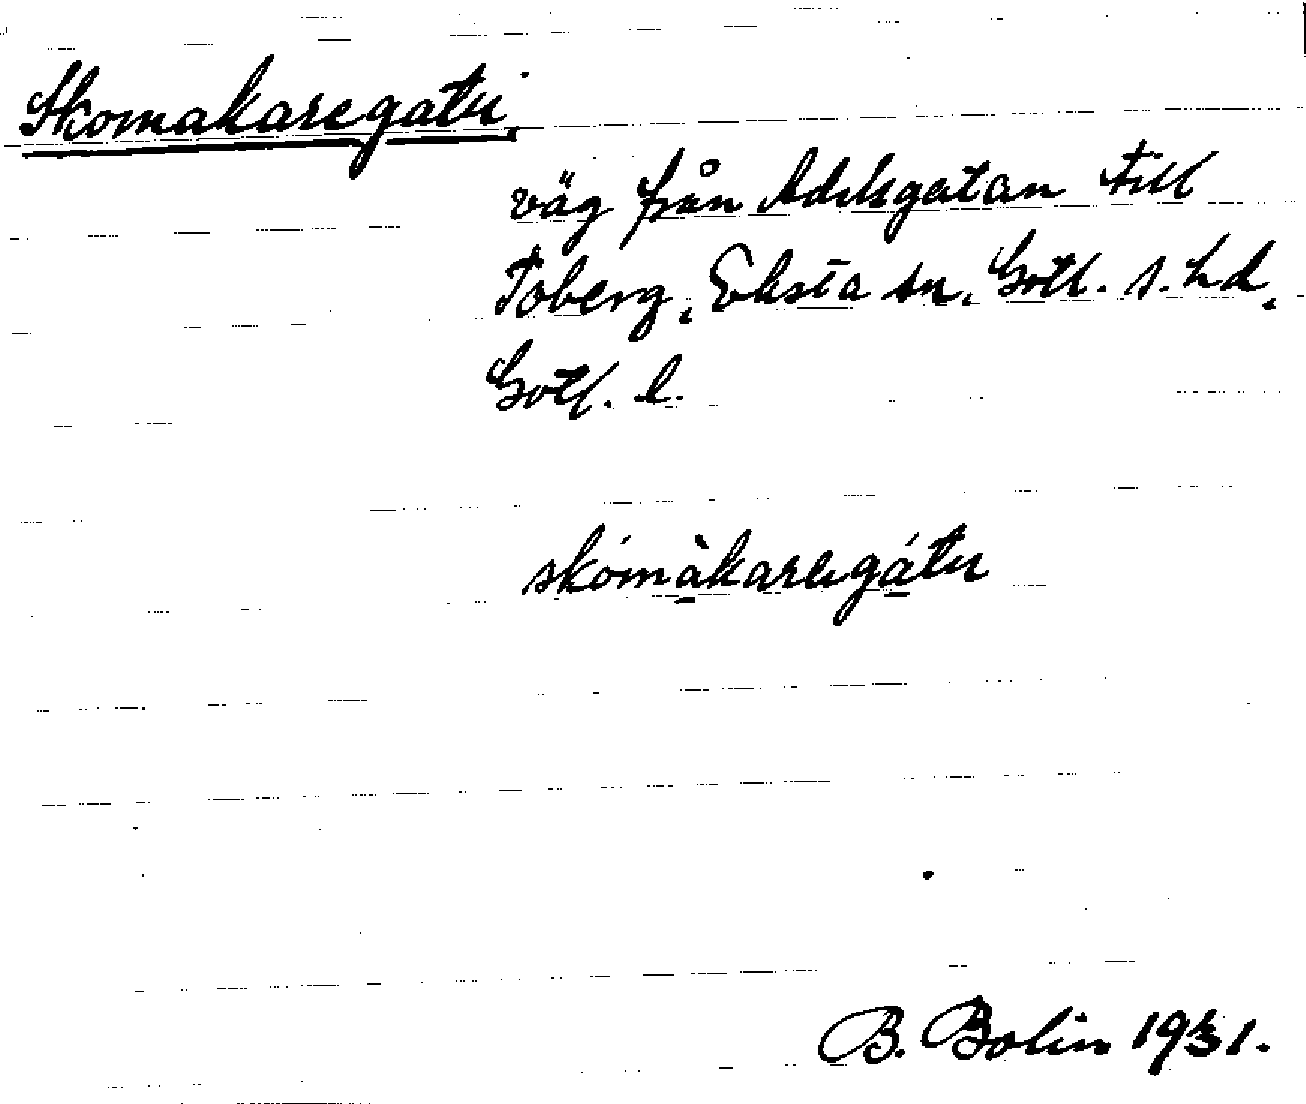 Skomakaregatu
väg från Adelsgatan till
Toberg, Eksta sn, Gotl. s. hd,
Gotl. l.
skómàkaregátu
B. Bolin 1931.